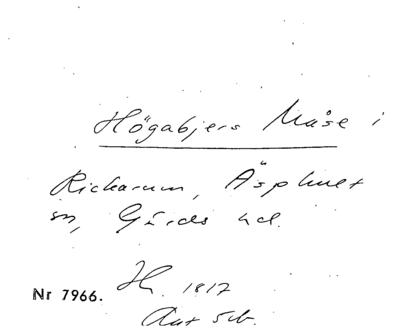 Högabjers Måse i
Rickarum, Äsphult
sn, Gärds hd.
Nr 7966.
1817
Ant 5 b.